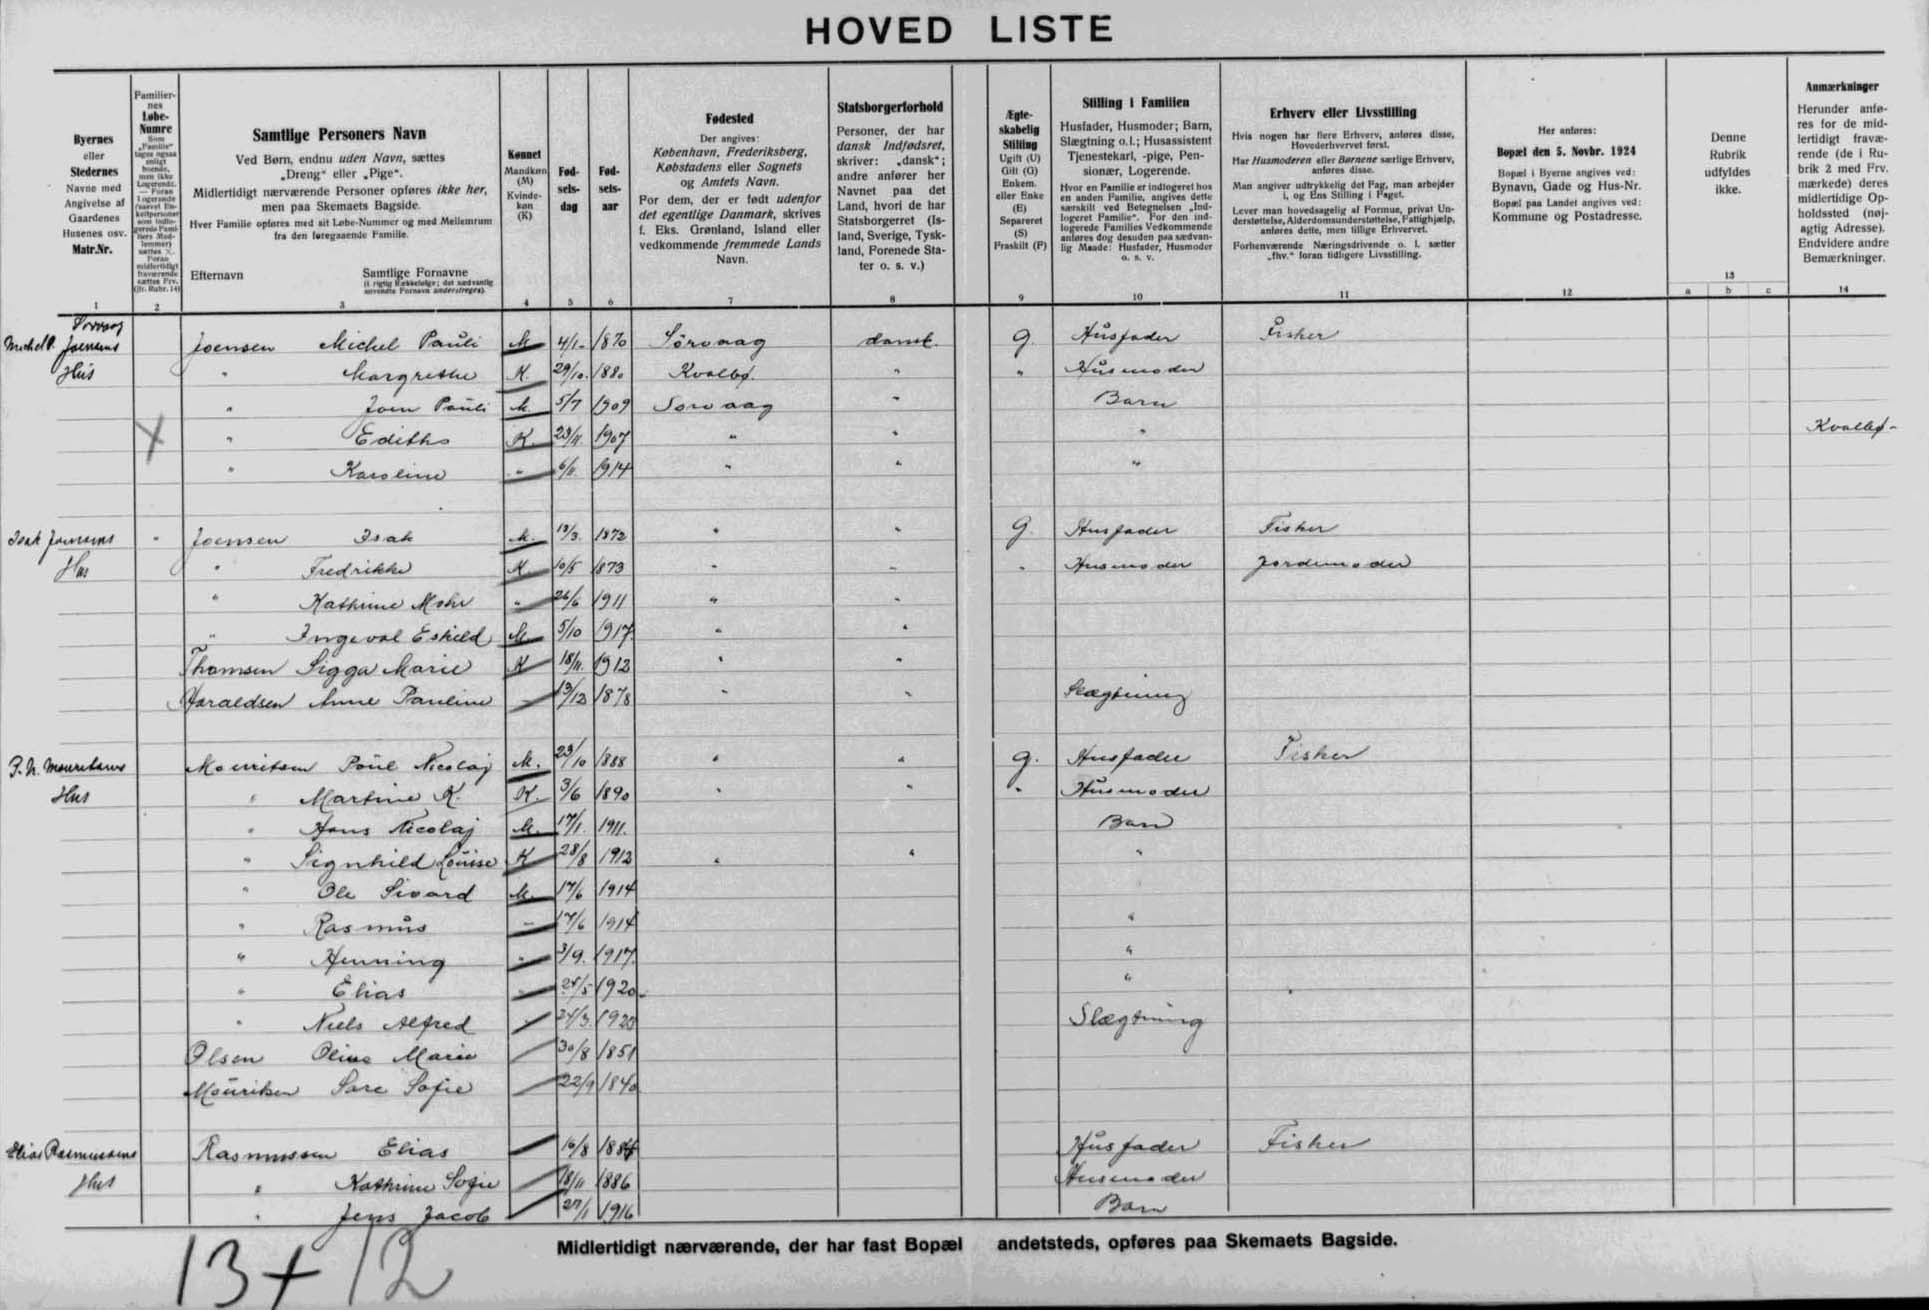 HOVED LISTE
Byernes
eller
Stedernes
Navne med
Angivelse af
Gaardenes
Husenes osv.
Matr.Nr.
1
Familier-
nes
Løbe-
Numre
2
Samtlige Personers Navn
Ved Børn, endnu uden Navn, sættes
„Dreng" eller „Pige".
Midlertidigt nærværende Personer opføres ikke her,
men paa Skemaets Bagside.
Hver Familie opføres med sit Løbe-Nummer og med Mellemrum
fra den foregaaende Familie.
Efternavn
Samtlige Fornavne
(i rigtig Rækkefølge; det sædvanlig
anvendte Fornavn understreges).
3
Kønnet
Mandkøn
(M)
Kvinde-
køn
(K)
4
Fød-
sels-
dag
5
Fød-
sels-
aar
6
Fødested
Der angives:
København, Frederiksberg,
Købstadens eller Sognets
og Amtets Navn.
For dem, der er født udenfor
det egentlige Danmark, skrives
f. Eks. Grønland, Island eller
vedkommende fremmede Lands
Navn.
7
Statsborgerforhold
Personer, der har
dansk Indfødsret,
skriver: „dansk";
andre anfører her
Navnet paa det
Land, hvori de har
Statsborgerret (Is-
land, Sverige, Tysk-
land, Forenede Sta-
ter o. s. v.)
8
Ægte-
skabelig
Stilling
Ugift (U)
Gift (G)
Enkem.
eller Enke
(E)
Separeret
(S)
Fraskilt (F)
9
Stilling i Familien
Husfader, Husmoder; Barn,
Slægtning o.l.; Husassistent
Tjenestekarl, -pige, Pen-
sionær, Logerende.
Hvor en Familie er indlogeret hos
en anden Familie, angives dette
særskilt ved Betegnelsen „Ind-
logeret Familie". For den ind-
logerede Families Vedkommende
anføres dog desuden paa sædvan-
lig Maade: Husfader, Husmoder
o. s. v.
10
Erhverv eller Livsstilling
Hvis nogen har flere Erhverv, anføres disse,
Hovederhvervet først.
Har Husmoderen eller Børnene særlige Erhverv,
anføres disse.
Man angiver udtrykkelig det Fag, man arbejder
i, og Ens Stilling i Faget.
Lever man hovedsagelig af Formue, privat Un-
derstøttelse, Alderdomsunderstøttelse, Fattighjælp,
anføres dette, men tillige Erhvervet.
Forhenværende Næringsdrivende o. l. sætter
„fhv." foran tidligere Livsstilling.
11
Her anføres:
Bopæl den 5. Novbr. 1924
Bopæl i Byerne angives ved:
Bynavn, Gade og Hus-Nr.
Bopæl paa Landet angives ved:
Kommune og Postadresse.
12
Denne
Rubrik
udfyldes
ikke.
13
a b c
Anmærkninger
Herunder anfø-
res for de mid-
lertidigt fravæ-
rende (de i Ru-
brik 2 med Frv.
mærkede) deres
midlertidige Op-
holdssted (nøj-
agtig Adresse).
Endvidere andre
Bemærkninger.
14
Sorvaag
Michel P. Joensens Joensen Michel Pauli M 4/1 1870 Sörvaag dansk. g Husfader Fisker
Hus " Margrethe K. 29/10. 1880 Kvalbø. " " Husmoder
" Joen Pauli M 5/7 1909 Sorvaag " Barn
X " Editha K. 23/11. 1907 " " " Kvalbø-
" Karoline " 6/11. 1914 " " "
Isak Joensens " Joensen Isak M. 13/3 1872 " " g Husfader Fisker
Hus " Fredrikke K 10/5 1873 " " " Husmoder Jordemoder
" Kathrine Mohr " 26/6 1911 " "
" Ingeval Eskild M 5/10 1917. " "
Thomsen Sigga Marie K 18/11. 1912 " "
Haraldsen Anne Pauline " 13/12 1878 " " Slægtning
P. N. Mouritsens Mouritsen Poul Nicolaj M. 23/10 1888 " " g. Husfader Fisker
Hus " Martine K. K. 3/6 1890 " " " Husmoder
" Hans Nicolaj M. 17/1. 1911. Barn
" Signhild Louise K 28/8 1912 " " "
" Ole Sivard M. 17/6 1914
" Rasmus " 17/6 1914 "
" Henning " 3/9. 1917. "
" Elias " 25/5 1920 "
" Niels Alfred 24/3. 1923 Slægtning
Olsen Oline Marie 30/8 1851
Mouritsen Sare Sofie 22/9 1840
Elias Rasmussens Rasmussen Elias 16/8 1884 Husfader Fisker
Hus " Kathrine Sofie 18/11 1886 Husmoder
" Jens Jacob 27/1 1916 Barn
Midlertidigt nærværende, der har fast Bopæl andetsteds, opføres paa Skemaets Bagside.
13 + 12